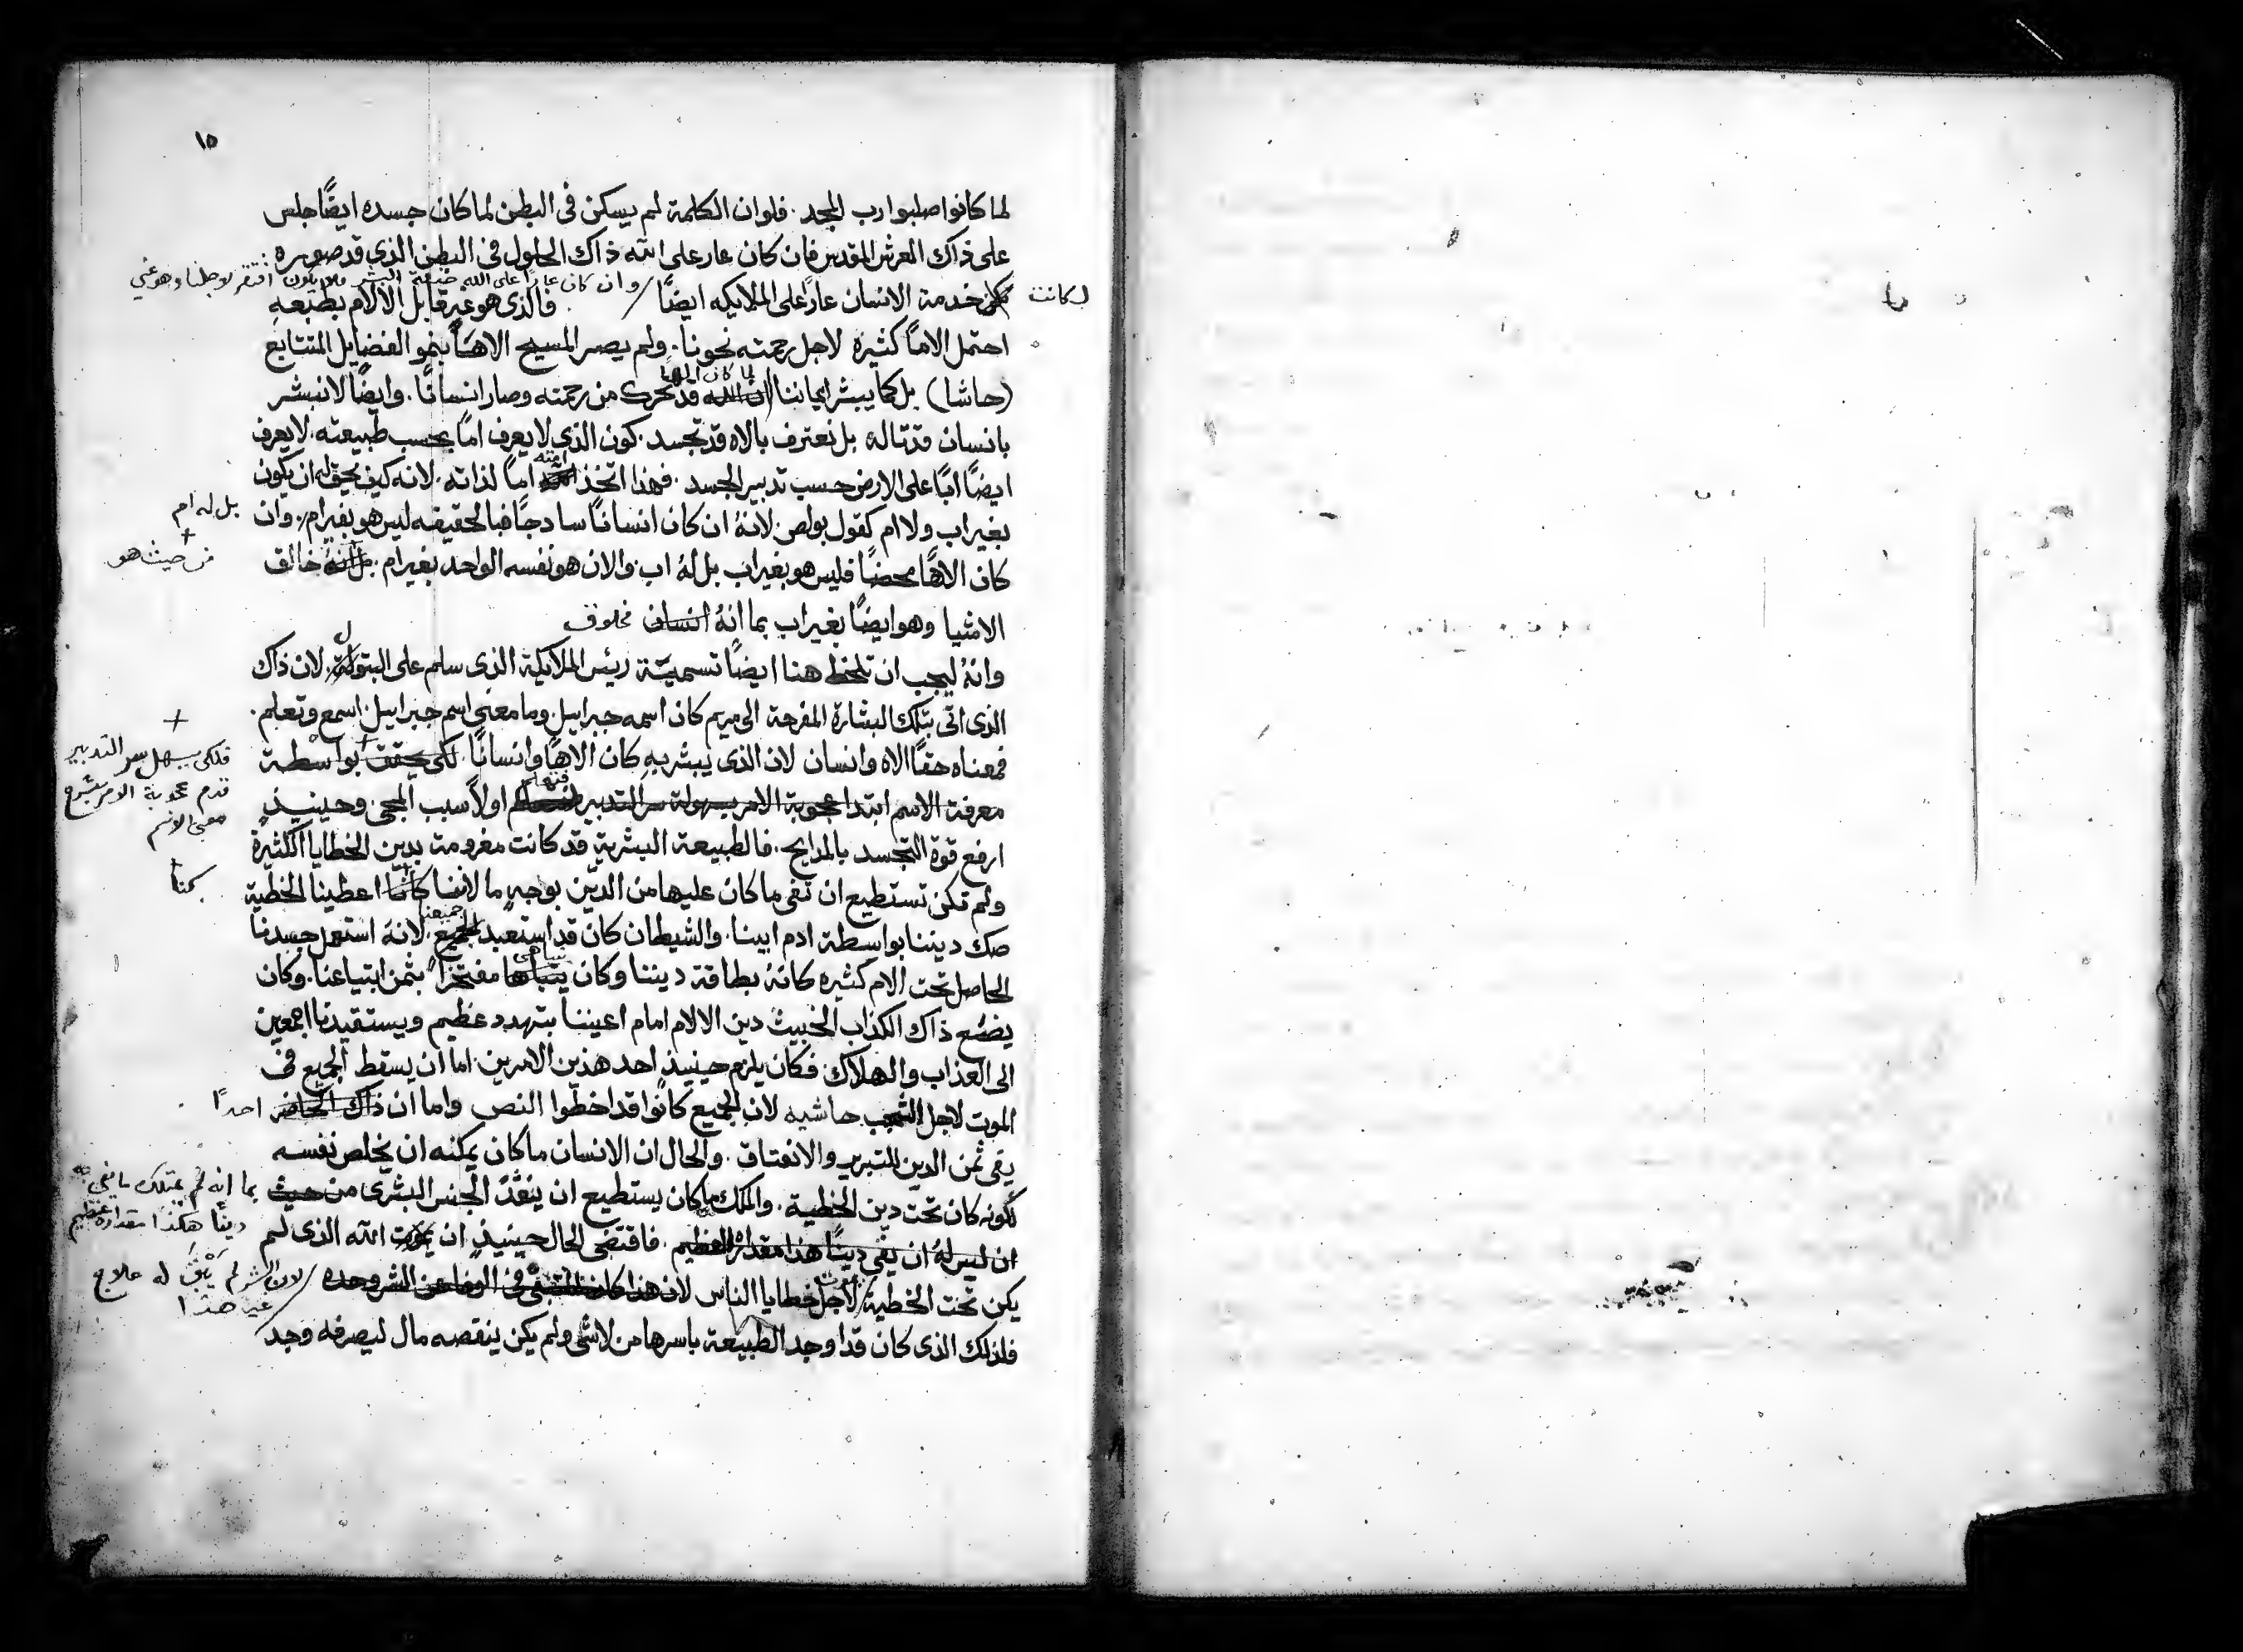 ١٥
لما كانوا صلبوا رب المجد. فلو ان الكلمة لم يسكن فى البطن لما كان جسده ايضًا جلس
على ذاك العرش المقدس فان كان عار على الله ذاك الحلول فى البطن الذى قد صوره
وان كان عارًا على الله البشر افتقر لاجلنا وهو غني
لكانت
خدمة الانسان عارًا على الملايكه ايضًا فالذى هو غير قابل الالام بطبعه
احتمل الامًا كثيره لاجل رحمته نحونا. ولم يصر المسيح الاهًا بنمو الفضايل المتتابع
لما كان الهًا
(حاشا) بل كما يبشر ايماننا ان الله قد تحرك من رحمته وصار انسانًا. وايضًا لا نبشر
بانسان قد تاله بل نعترف بالاه قد تجسد. كون الذى لا يعرف امًا بحسب طبيعته. لا يعرف
امته
ايضًا ابًا على الارض حسب تدبير الجسد. فهذا اتخذ امًا لذاته. لانه كيف يحق له ان يكون
بغير اب ولا ام كقول بولص. لانهُ ان كان انسانًا سادجًا فبالحقيقه ليس هو بغير ام. وان
بل له ام
كان الاهًا محضًا فليس هو بغير اب بل لهُ اب. والان هو نفسه الواحد بغير ام. بل انهُ خالق
من حيث هو
الاشيا وهو ايضًا بغير اب بما انهُ انسان مخلوق
وانهُ ليجب ان تلحظ هنا ايضًا تسميّة ريئس الملايكة الذى سلم على البتولة. لان ذاك
الذى اتى بتلك البشارة المفرحة الى مريم كان اسمه جبراييل. وما معنى اسم جبراييل. اسمع وتعلم.
فمعناه حقًا الاه وانسان لان الذى يبشر به كان الاهًا وانسانًا. لكى يحقق بواسطة
فلكى يسهل سر التدبير
قدم عجوبة الامر بشرح
معنى الاسم
معرفة الاسم ابتدا عجوبة الامر بسهولة سر التدبير اولاً سبب المجى. وحينيذٍ
ارفع قوة التجسد بالمدايح. فالطبيعة البشرية قد كانت مغرومة بدين الخطايا الكثيرة
ولم تكن تستطيع ان تفى ما كان عليها من الدين بوجهٍ ما لاننا كاننا اعطينا الخطية
كنا
جميعنا
صك ديننا بواسطة ادم ابينا. والشيطان كان قد استعبد الجميع. لانهُ استعمل جسدنا
يتباهى
الحاصل تحت الام كثيره كانهُ بطاقة ديننا وكان يتباها مفتخرًا بثمن ابتياعنا. وكان
يضع ذاك الكذاب الخبيث دين الالام امام اعيننا بتهدد عظيم ويستقيدنا اجمعين
الى العذاب والهلاك. فكان يلزم حينيذٍ احد هذين الامرين. اما ان يسقط الجميع فى
الموت لاجل الشجب حاشيه لان الجميع كانوا قد اخطوا النص واما ان ذاك الحاضر احدًا
يفى ثمن الدين للتبرير والانعتاق. والحال ان الانسان ما كان يمكنه ان يخلص نفسه
لكونه كان تحت دين الخطية. والملك ما كان يستطيع ان ينقذ الجنس البشرى من حيث
بما انه لم يمتلك ما يفي به
دينًا هكذا مقداره عظيم
ان ليس لهُ ان يفى دينًا هذا مقداره العظيم. فاقتضى الحال حينيذٍ ان يموت الله الذى لم
يكن تحت الخطية لاجل خطايا الناس لان هذا كان فى الوفا عن الشر وحده
لان الشر لم يَبْقَ له علاج
غير هذا
فلذلك الذى كان قد اوجد الطبيعة باسرها من لاشى ولم يكن ينقصه مال ليصرفه وجد